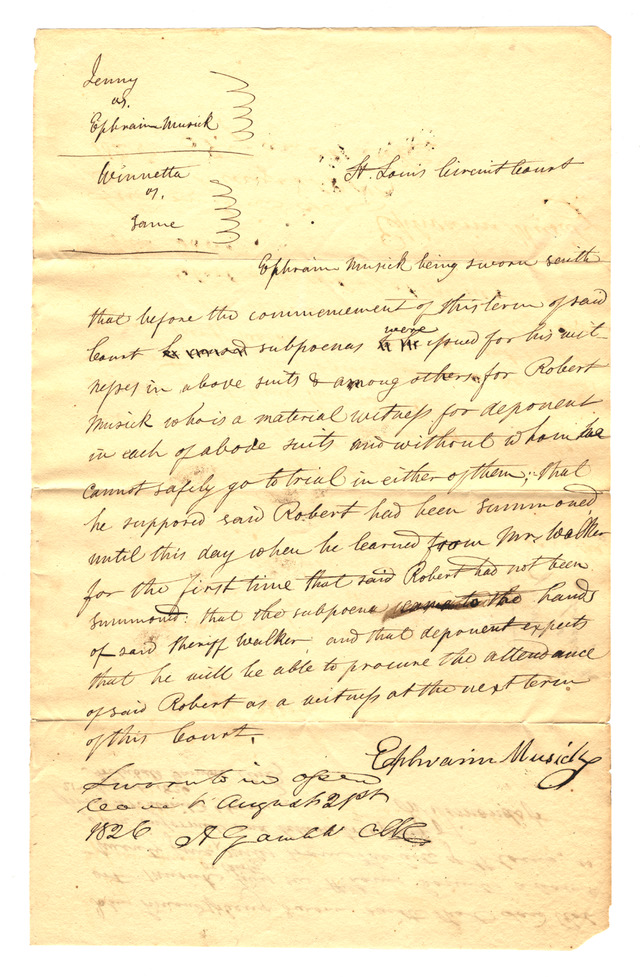 Jenny
vs.
Ephraim Musick
Winnetta
vs.
Same
St. Louis Circuit Court
Ephraim Musick being sworn saith
that before the commencement of this term of said
Court subpoenas were issued for his wit-
nesses in above suits & among others for Robert
Musick who is a material witness for deponent
in each of above suits and without whom he
cannot safely go to trial in either of them; that
he supposed said Robert had been summoned
until this day when he learned from Mr. Walker
for the first time that said Robert had not been
summond: that the subpoena came to the hands
of said Sheriff Walker, and that deponent expects
that he will be able to procure the attendance
of said Robert as a witness at the next term
of this Court.
Ephraim Musick
Sworn to in open
court August 21st
1826 A Gamble Clk